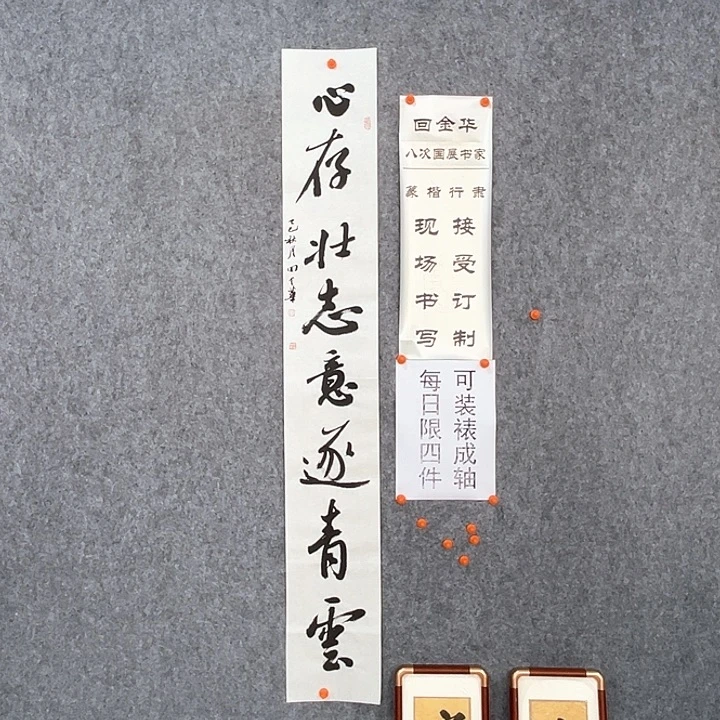 心存壮志意遂青雲
乙巳秋月回金華
回金华
八次国展书家
篆楷行
接受订制
现场书写
可装裱成轴
每日限四件